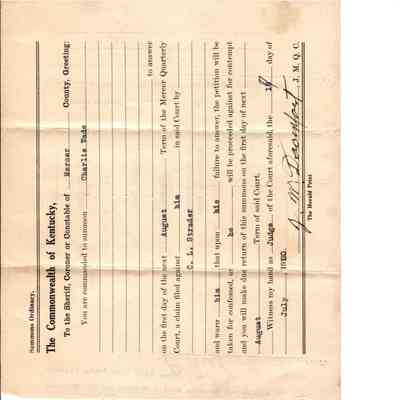 Summons Ordinary.
The Commonwealth of Kentucky,
To the Sheriff, Coroner or Constable of Mercer County, Greeting:
You are commanded to summon Charlie Tade
to answer
on the first day of the next August Term of the Mercer Quarterly
Court, a claim filed against him in said Court by
C. L. Strader
and warn him that upon his failure to answer, the petition will be
taken for confessed, or he will be proceeded against for contempt
and you will make due return of this summons on the first day of next
August Term of said Court.
Witness my hand as Judge of the Court aforesaid, the day of
July , 1920.
J. M. Q. C.
The Herald Print